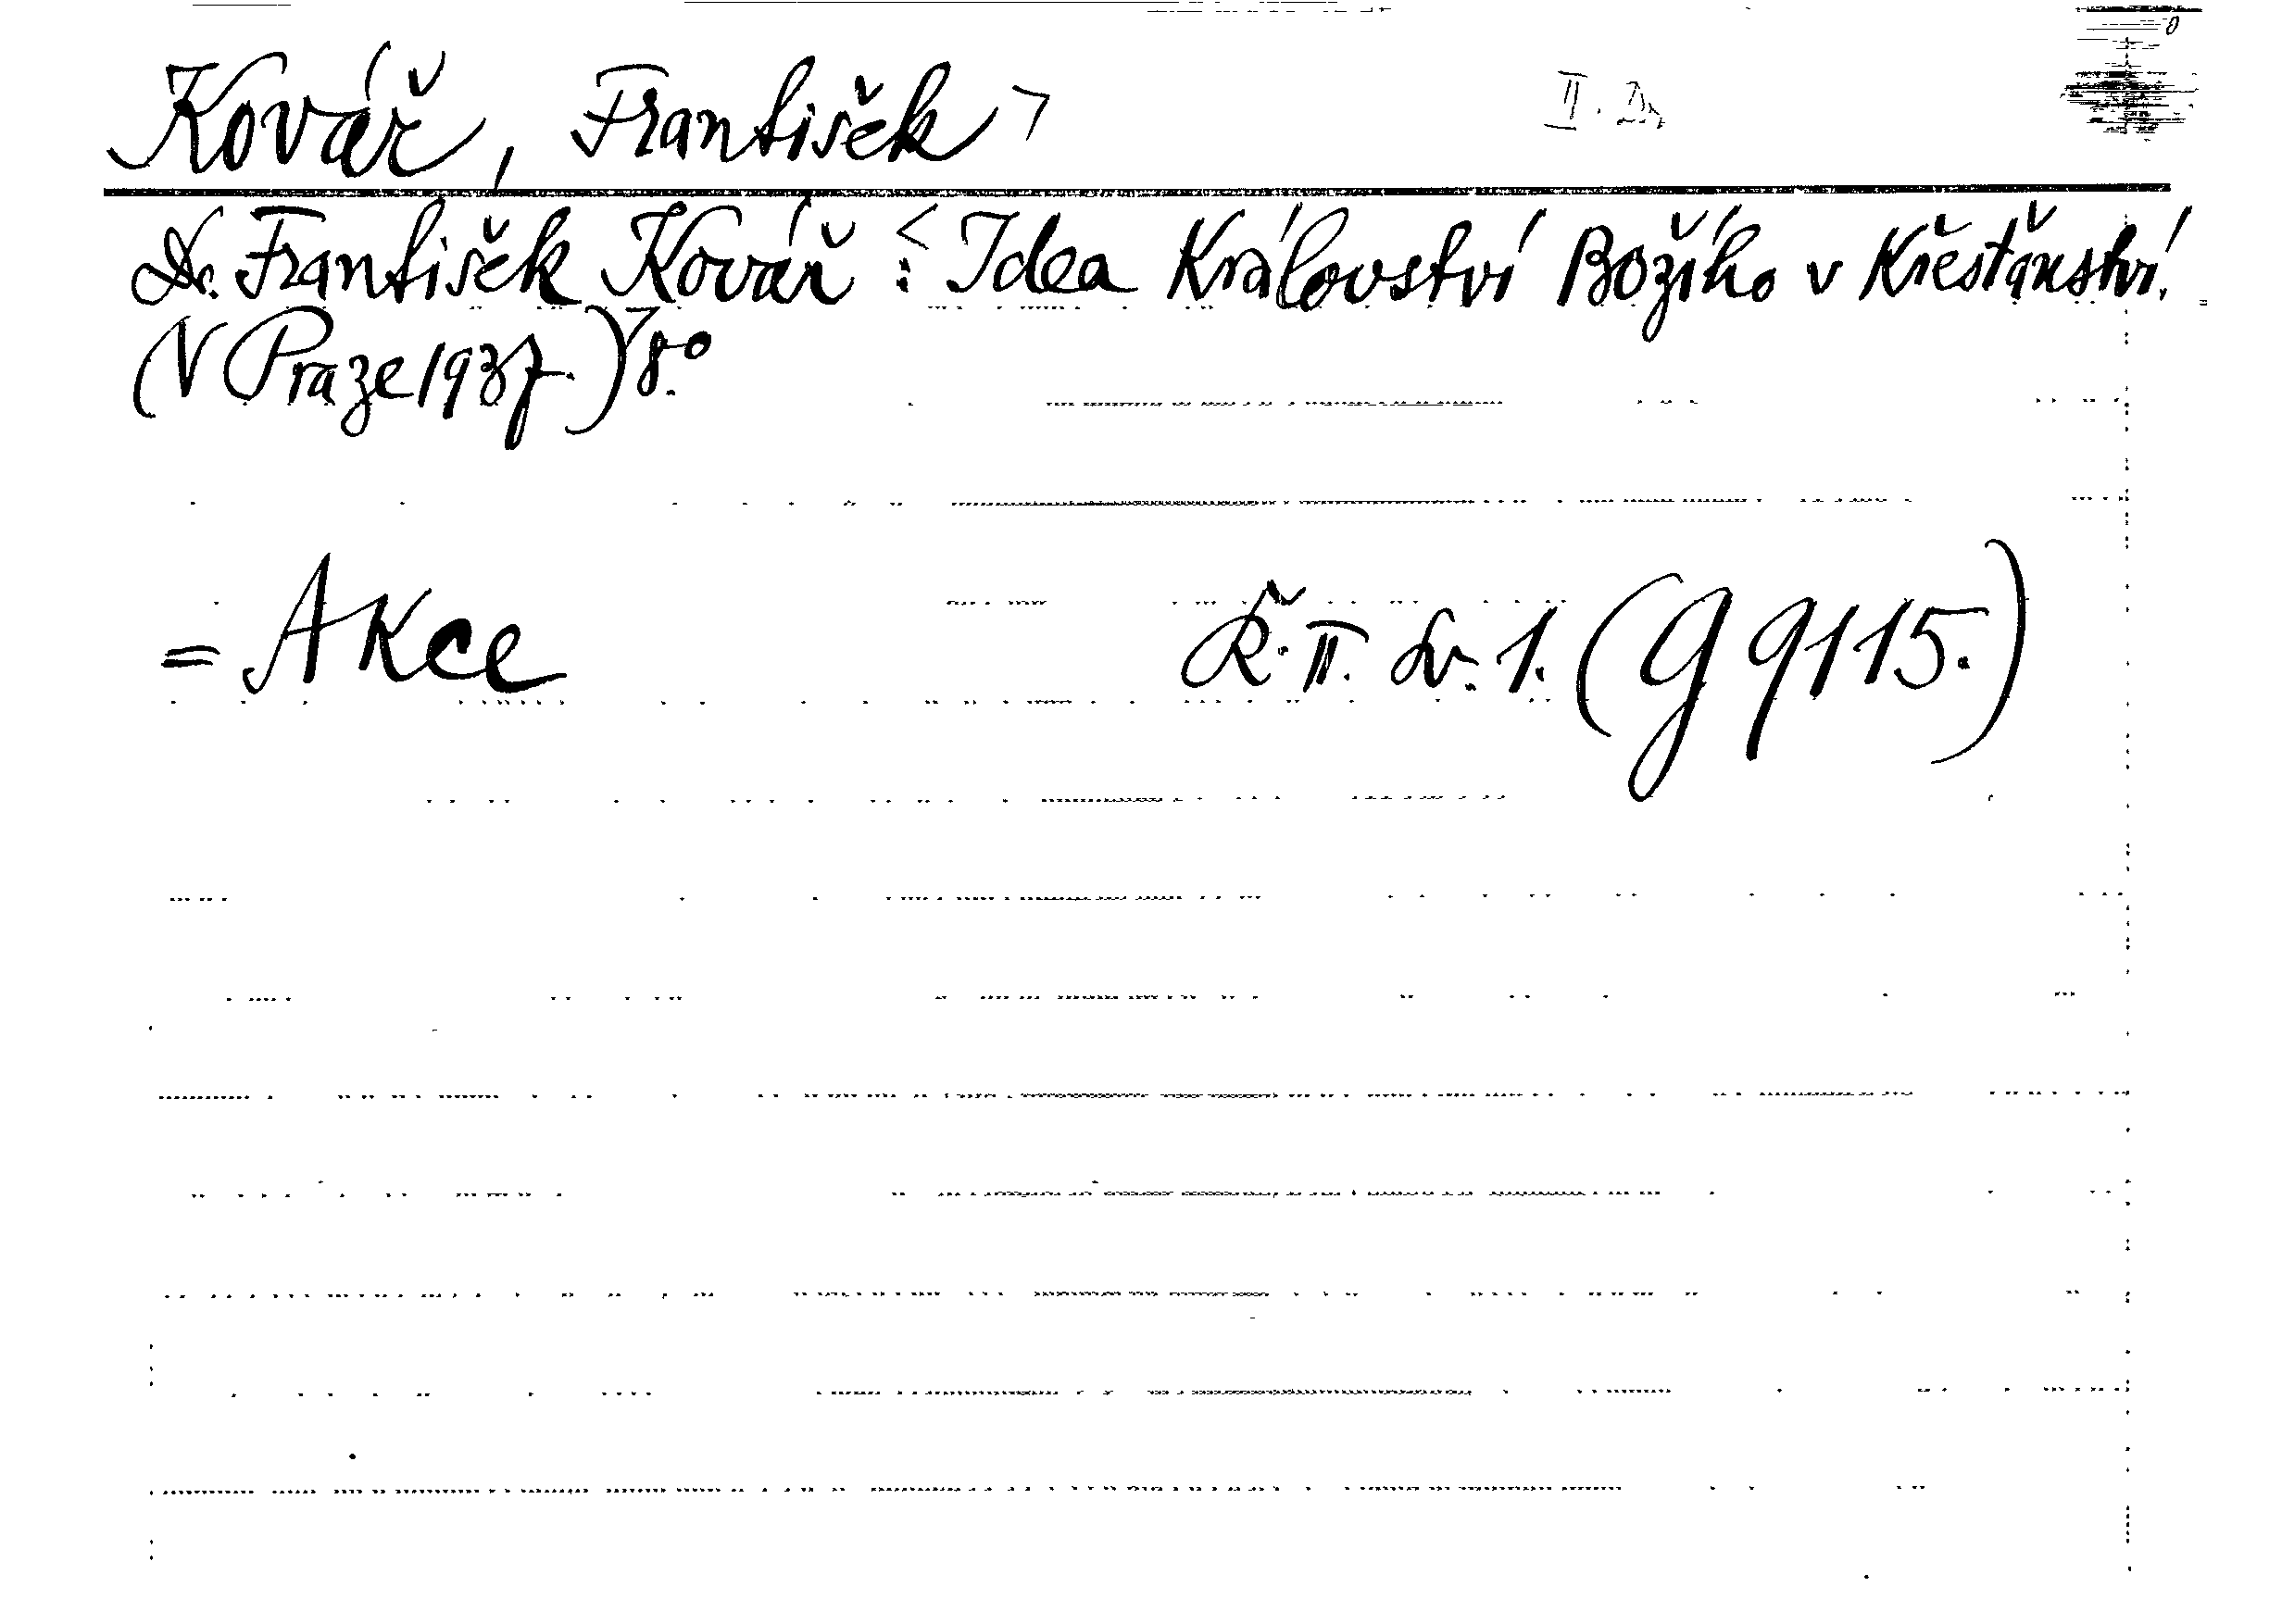 Kovář, František ¬ II. Dr.
Dr. František Kovář <: Idea Království Božího v Křesťanství.
(V Praze 1937.) 8.°
= Akce Ř. II. Sv. 1. (G 9115.)